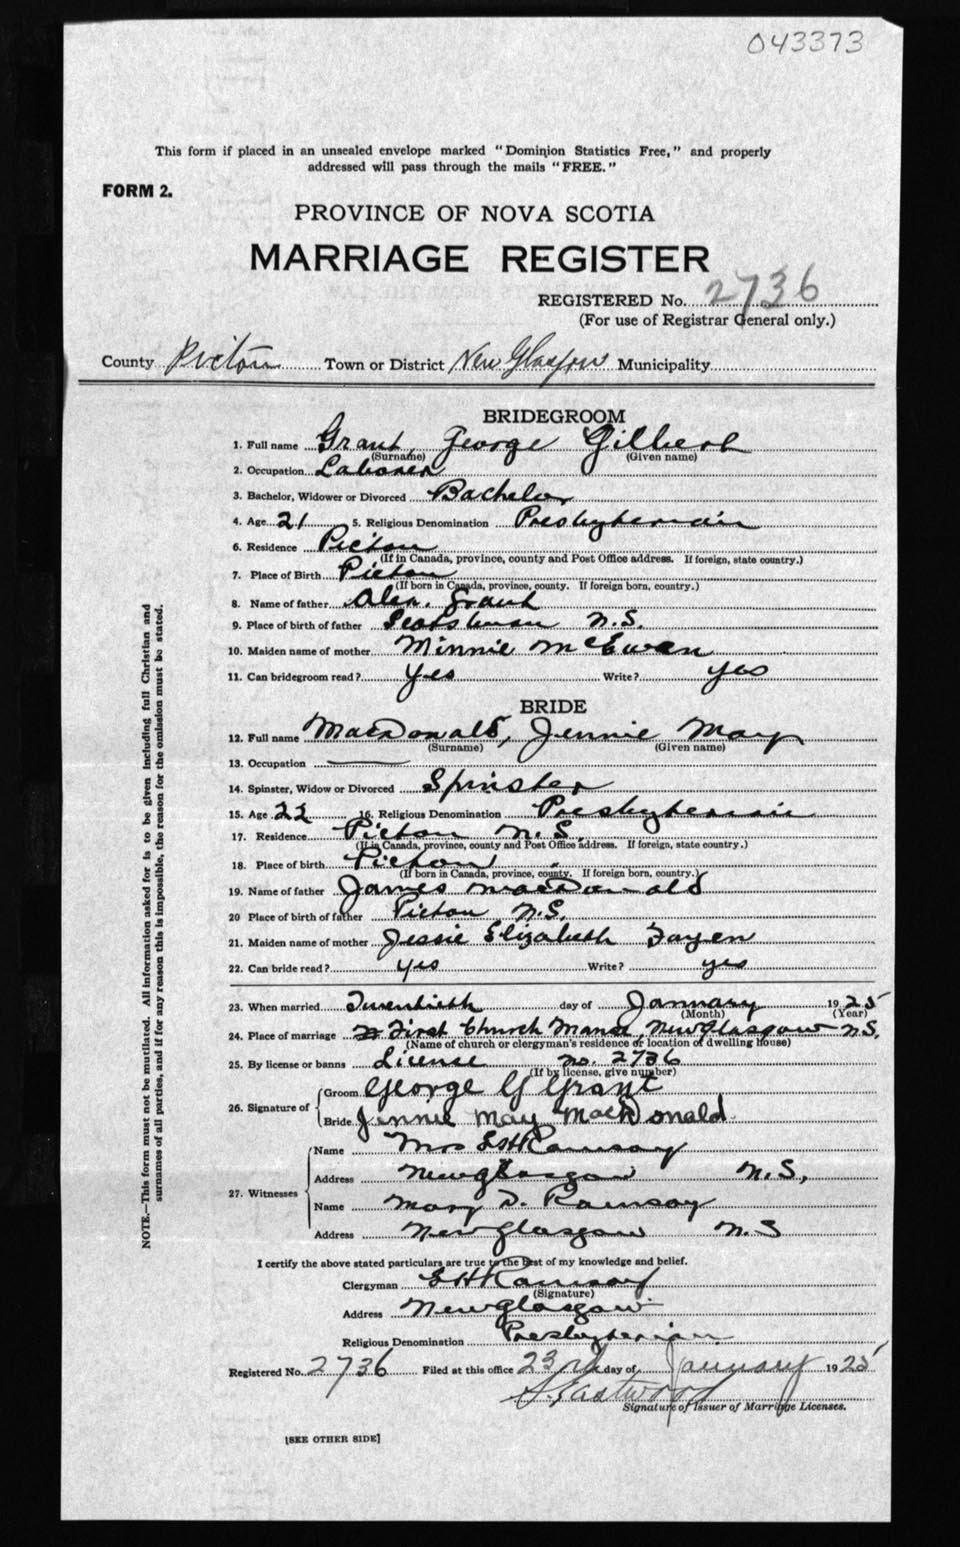 043373
This form if placed in an unsealed envelope marked "Dominion Statistics Free," and properly
addressed will pass through the mails "FREE."
FORM 2.
PROVINCE OF NOVA SCOTIA
MARRIAGE REGISTER
REGISTERED No. 2736
(For use of Registrar General only.)
County Pictou Town or District New Glasgow Municipality
BRIDEGROOM
1. Full name Grant, George Gilbert
(Surname) (Given name)
2. Occupation Laborer
3. Bachelor, Widower or Divorced Bachelor
4. Age 21 5. Religious Denomination Presbyterian
6. Residence Pictou
(If in Canada, province, county and Post Office address. If foreign, state country.)
7. Place of Birth Pictou
(If born in Canada, province, county. If foreign born, country.)
8. Name of father Alex. Grant
9. Place of birth of father N.S.
10. Maiden name of mother Minnie McEwen
11. Can bridegroom read? yes Write? yes
BRIDE
12. Full name MacDonald, Jennie May
(Surname) (Given name)
13. Occupation
14. Spinster, Widow or Divorced Spinster
15. Age 22 16. Religious Denomination Presbyterian
17. Residence Pictou N.S.
(If in Canada, province, county and Post Office address. If foreign, state country.)
18. Place of birth Pictou "
(If born in Canada, province, county. If foreign born, country.)
19. Name of father James MacDonald
20 Place of birth of father Pictou N.S.
21. Maiden name of mother Jessie Elizabeth
22. Can bride read? yes Write? yes
23. When married Twentieth day of January 1925
(Month) (Year)
24. Place of marriage First Church Manse, New Glasgow N.S.
(Name of church or clergyman's residence or location of dwelling house)
25. By license or banns License no. 2736
(If by license, give number)
26. Signature of
Groom George G Grant
Bride Jennie May MacDonald
27. Witnesses
Name Mrs E H Ramsay
Address New Glasgow N.S.
Name Mary D. Ramsay
Address New Glasgow N.S
I certify the above stated particulars are true to the best of my knowledge and belief.
Clergyman E H Ramsay
(Signature)
Address New Glasgow
Religious Denomination Presbyterian
Registered No. 2736 Filed at this office 23rd day of January 1925
S. Eastwood
Signature of Issuer of Marriage Licenses.
[SEE OTHER SIDE]
NOTE.—This form must not be mutilated. All information asked for is to be given including full Christian and
surnames of all parties, and if for any reason this is impossible, the reason for the omission must be stated.